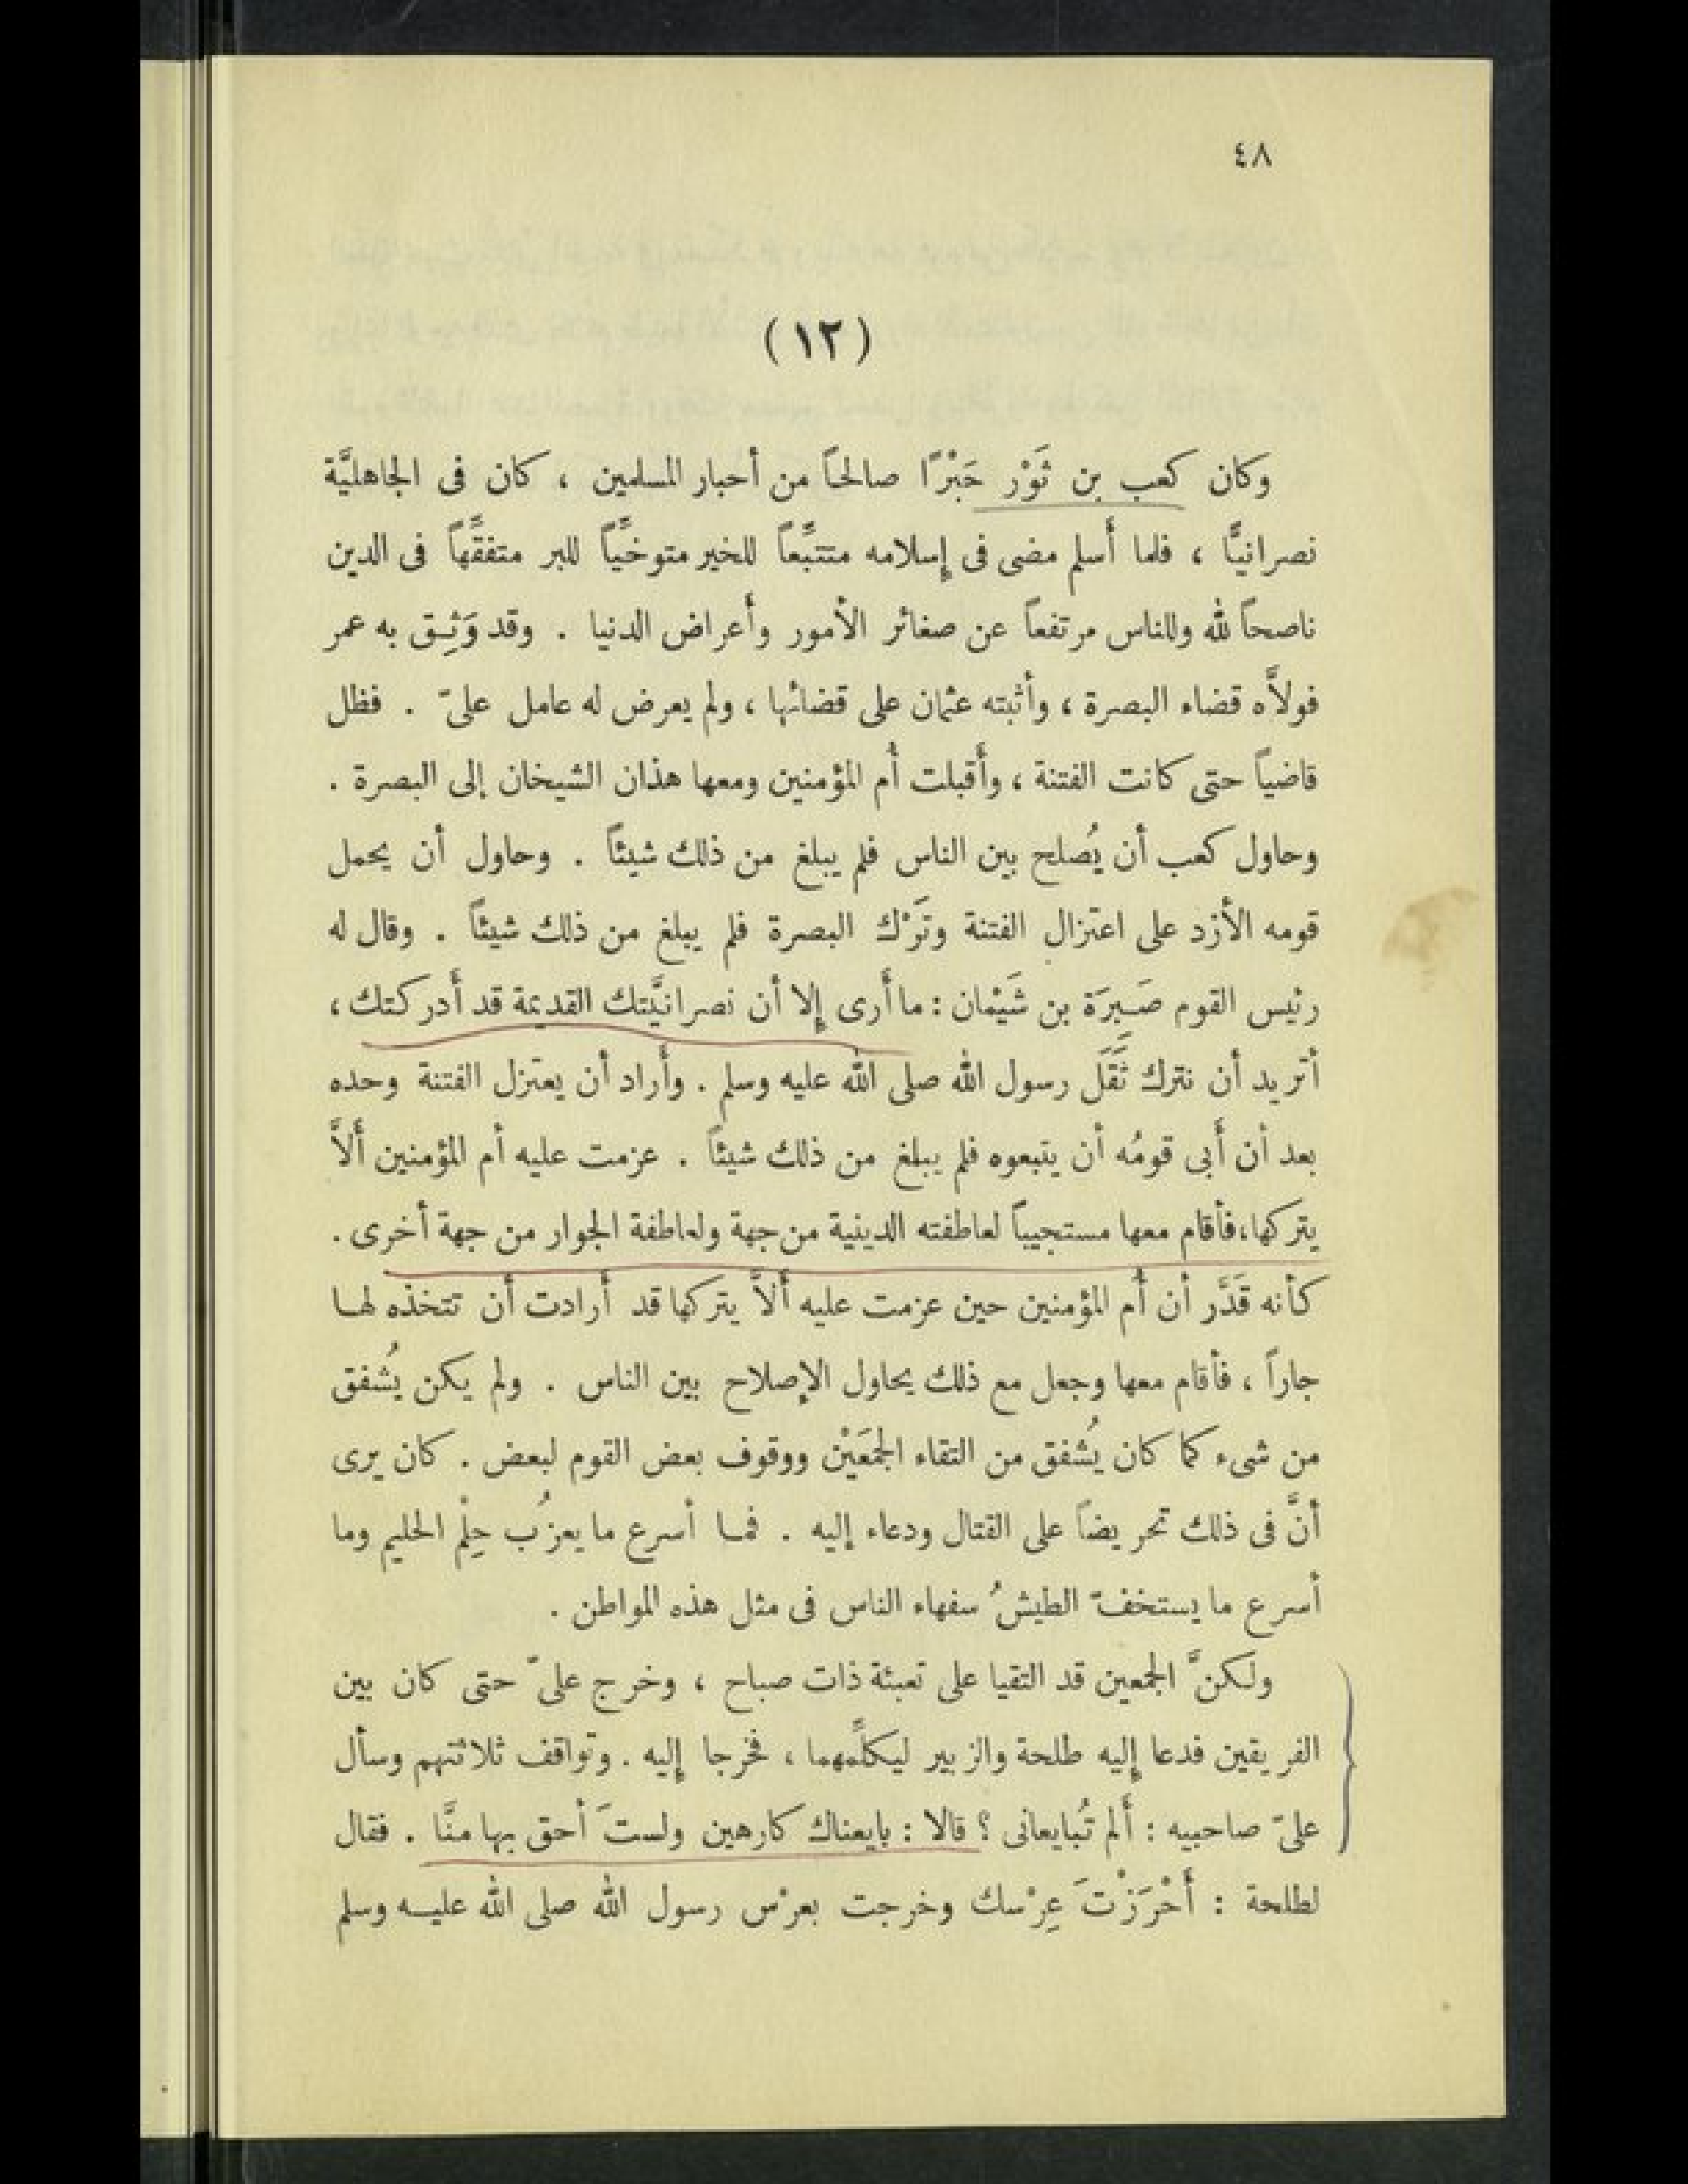 ٤٨
(١٢)
وكان كعب بن ثَوْر حَبْرًا صالحاً من أحبار المسلمين ، كان فى الجاهليَّة
نصرانيًّا ، فلما أسلم مضى فى إسلامه متتبِّعاً للخير متوخِّياً للبر متفقِّهاً فى الدين
ناصحاً لله وللناس مرتفعاً عن صغائر الأمور وأعراض الدنيا . وقد وَثِـق به عمر
فولاَّه قضاء البصرة ، وأثبته عثمان على قضائها ، ولم يعرض له عامل علىّ . فظل
قاضياً حتى كانت الفتنة ، وأقبلت أم المؤمنين ومعها هذان الشيخان إلى البصرة .
وحاول كعب أن يُصلح بين الناس فلم يبلغ من ذلك شيئاً . وحاول أن يحمل
قومه الأزد على اعتزال الفتنة وتَرْك البصرة فلم يبلغ من ذلك شيئاً . وقال له
رئيس القوم صَـبِرَة بن شَيْمان : ما أرى إلا أن نصرانيَّتك القديمة قد أدركتك ،
أتريد أن نترك ثَقَل رسول الله صلى الله عليه وسلم . وأراد أن يعتزل الفتنة وحده
بعد أن أبى قومُه أن يتبعوه فلم يبلغ من ذلك شيئاً . عزمت عليه أم المؤمنين ألاَّ
يتركها، فأقام معها مستجيباً لعاطفته الدينية من جهة ولعاطفة الجوار من جهة أخرى .
كأنه قَدَّر أن أم المؤمنين حين عزمت عليه ألاَّ يتركها قد أرادت أن تتخذه لهـا
جاراً ، فأقام معها وجعل مع ذلك يحاول الإصلاح بين الناس . ولم يكن يُشفق
من شىء كما كان يُشفق من التقاء الجمعَيْن ووقوف بعض القوم لبعض . كان يرى
أنَّ فى ذلك تحريضاً على القتال ودعاء إليه . فمـا أسرع ما يعزُب حِلْم الحليم وما
أسرع ما يستخفّ الطيشُ سفهاء الناس فى مثل هذه المواطن .
ولكنَّ الجمعين قد التقيا على تعبئة ذات صباح ، وخرج علىّ حتى كان بين
الفريقين فدعا إليه طلحة والزبير ليكلِّمهما ، فخرجا إليه . وتواقف ثلاثتهم وسأل
علىّ صاحبيه : ألم تُبايعانى ؟ قالا : بايعناك كارهين ولستَ أحق بها منَّا . فقال
لطلحة : أَحْرَزْتَ عِرْسك وخرجت بعرْس رسول الله صلى الله عليـه وسلم